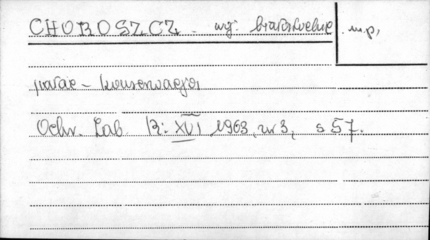 CHOROSZCZ - woj. białostockie m.p.
pałac - konserwacja
Ochr. Zab. R: XVI, 1963, nr 3, s 57.